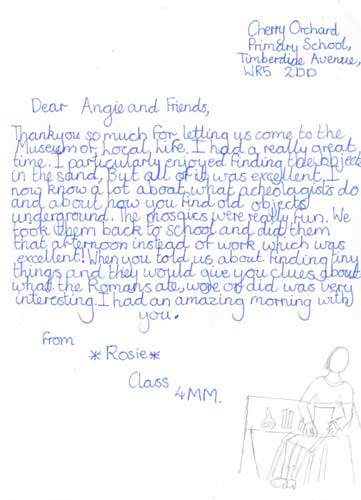 Cherry Orchard
Primary School,
Timberdine Avenue,
WR5 2DD
Dear Angie and Friends,
Thankyou so much for letting us come to the
Museum of Local Life. I had a really great
time. I particularly enjoyed finding the objects
in the sand, But all of it was excellent, I
now know a lot about what acheologists do
and about how you find old objects
underground. The mosaics were really fun. We
took them back to school and did them
that afternoon instead of work which was
excellent! When you told us about finding tiny
things and they would give you clues about
what the Romans ate, wore or did was very
interesting. I had an amazing morning with
you.
From
*Rosie*
Class
4MM.